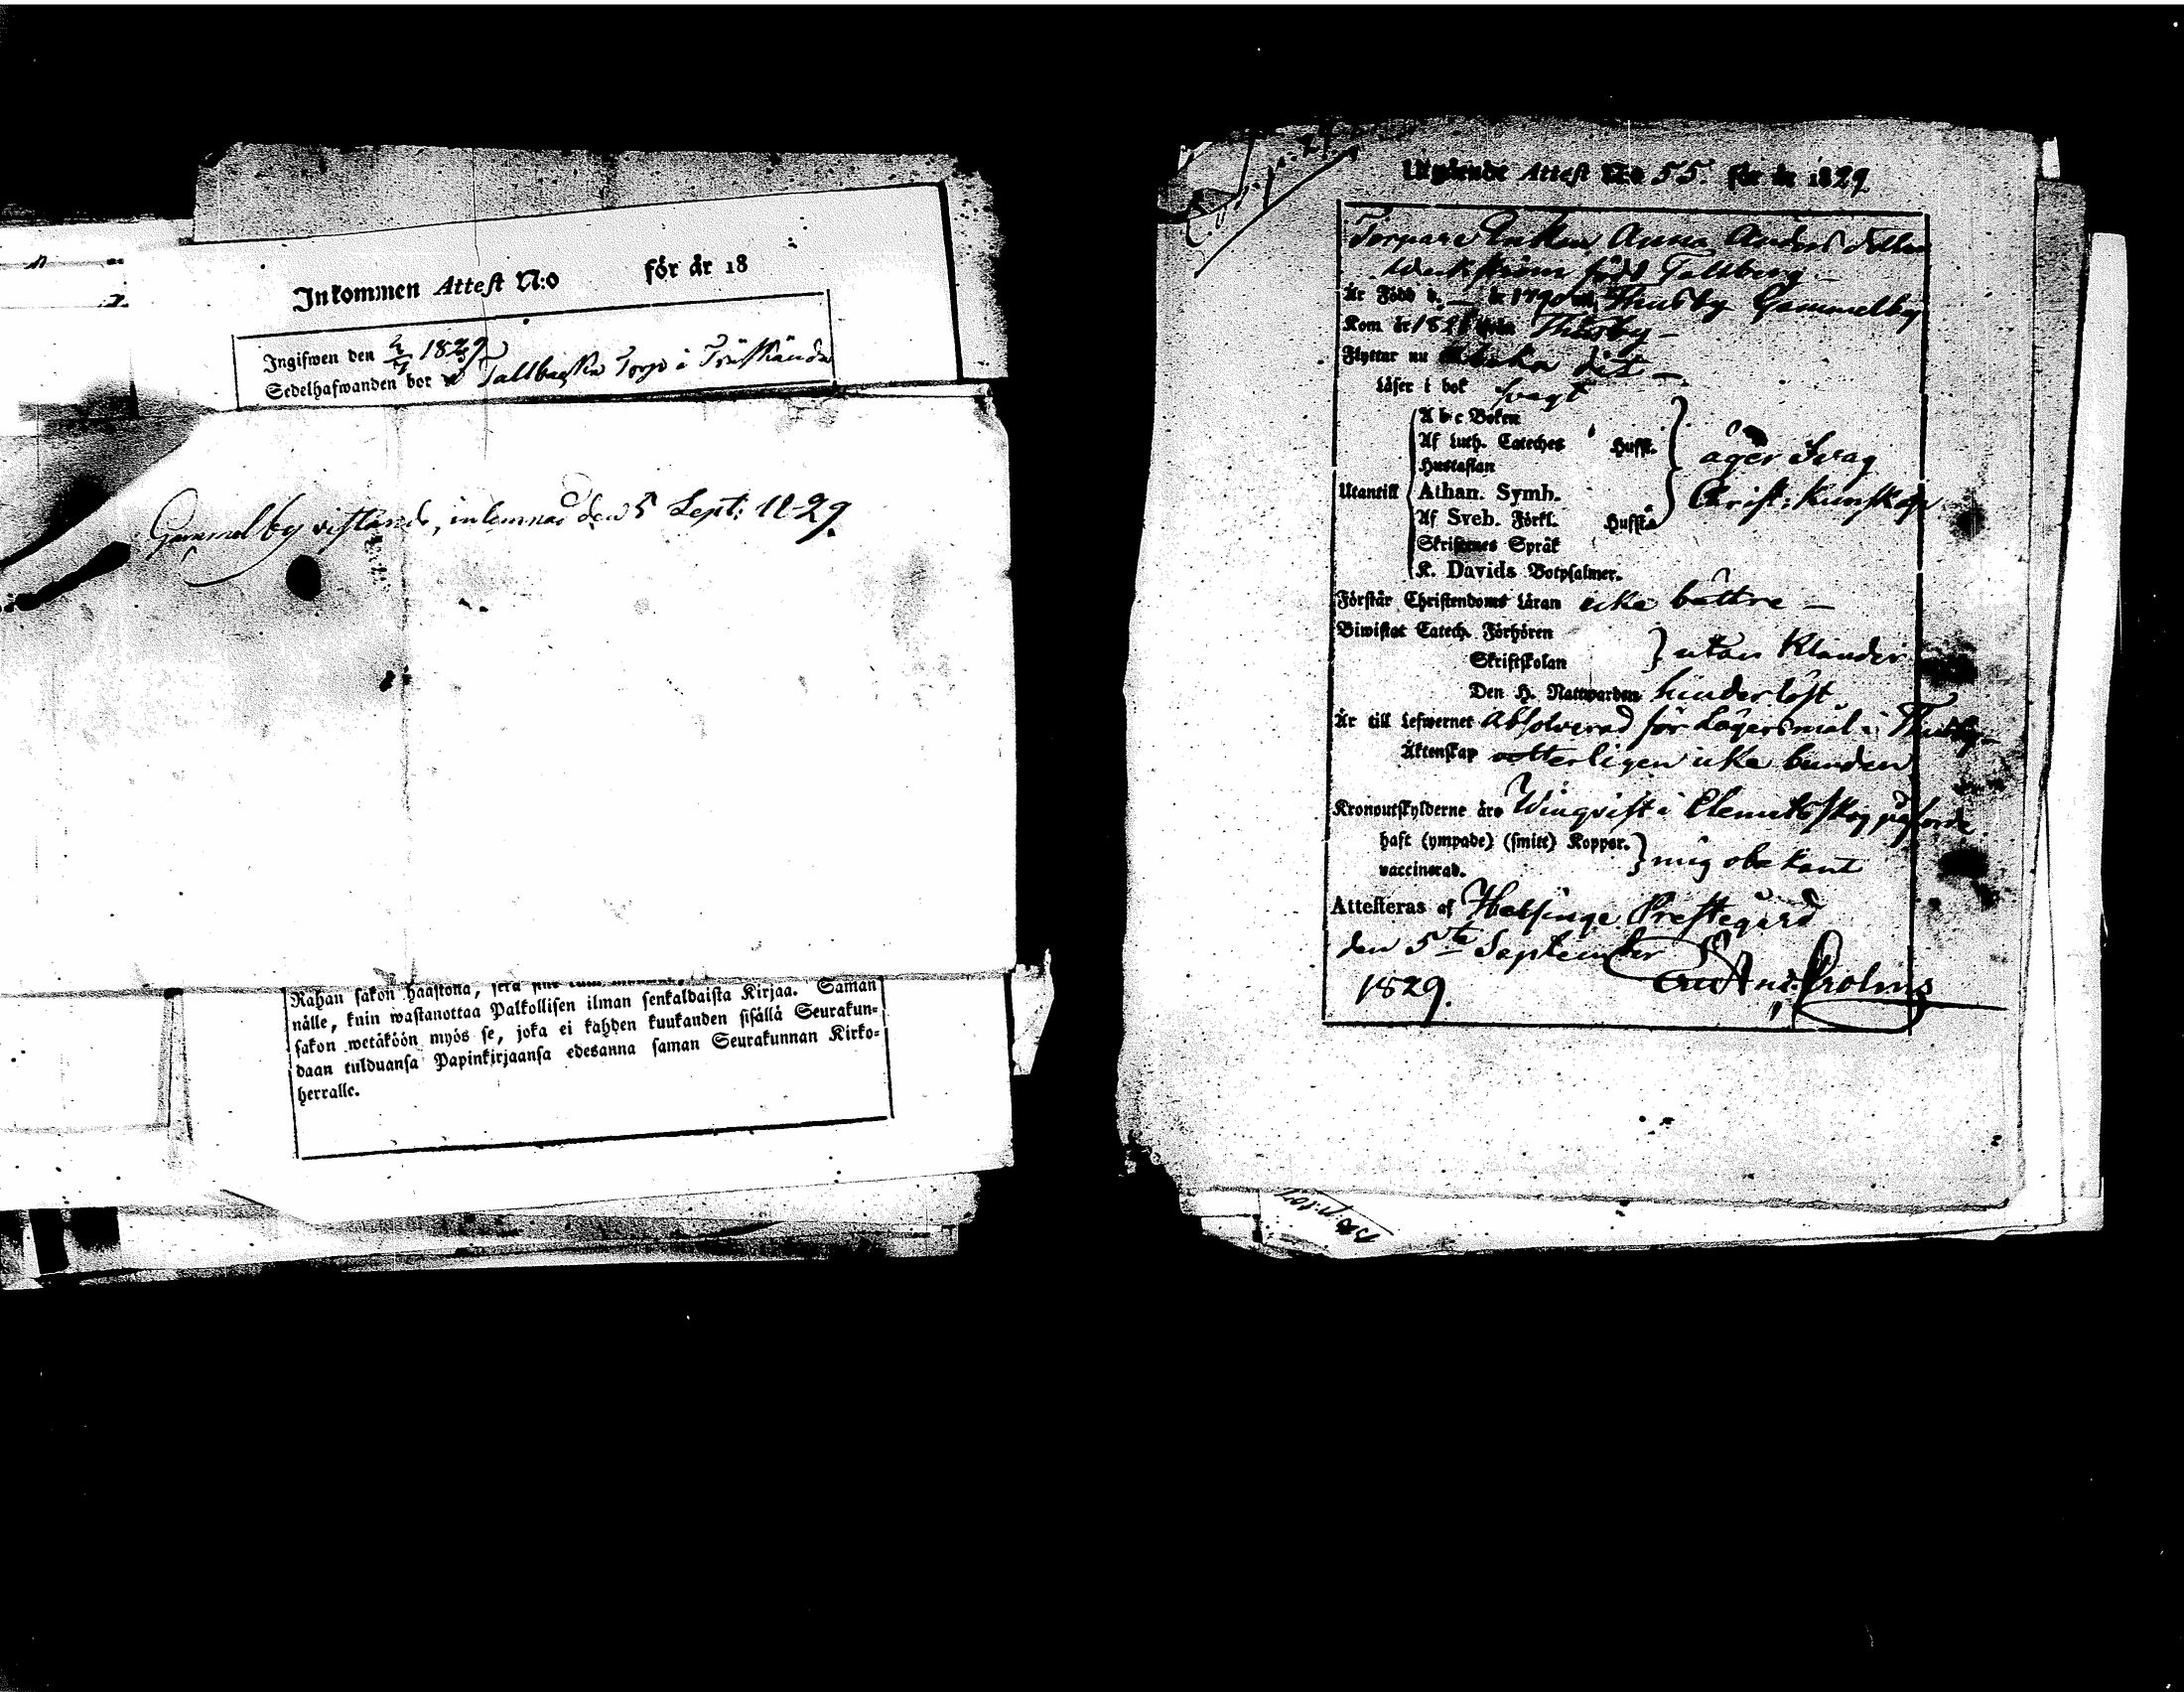 Inkommen Attest N:o för år 18
Ingifwen den 2/9 1829
Sedelhafwanden bor å Tallbacka Torp i Träskända
Gammelby vistande, inlemnad den 5 Sept: 1829.
Rahan sakon haastona,
nälle, kuin wastanottaa Palkollisen ilman senkaldaista Kirjaa. Saman
sakon wetäköön myös se, joka ei kahden kuukanden sisällä Seurakun-
daan tulduansa Papinkirjaansa edesanna saman Seurakunnan Kirko-
herralle.
Utgående Attest N:o 55. för år 1829
Torpare Enkan Anna Anders Dotter
född Tallberg
Är Född d. — år 1790 i Thusby Gammelby
Kom år 182 från Thusby —
Flyttar nu dit —
Läser i bok svagt
A b c Boken
Af Luth. Cateches Hufst.
Hustaflan
äger Svag
Utantill Athan. Symb.
Christ: Kunskap
Af Sveb. Förkl. Hufst.
Skriftenes Språk
K. Davids Botpsalmer.
Förstår Christendoms Läran icke bättre —
Biwistat Catech. Förhören
Skriftskolan } utan Klander
Den H. Nattwarden hinderlöst
Är till Lefwernet absolverad för Lägersmål i Thusby —
Äktenskap icke bunden
Kronoutskylderne äro Winqvist i
haft (ympade) (smitt) Koppor.
vaccinerad. } mig obekant
Attesteras af Helsinge Prestegård
den 5te September
1829.